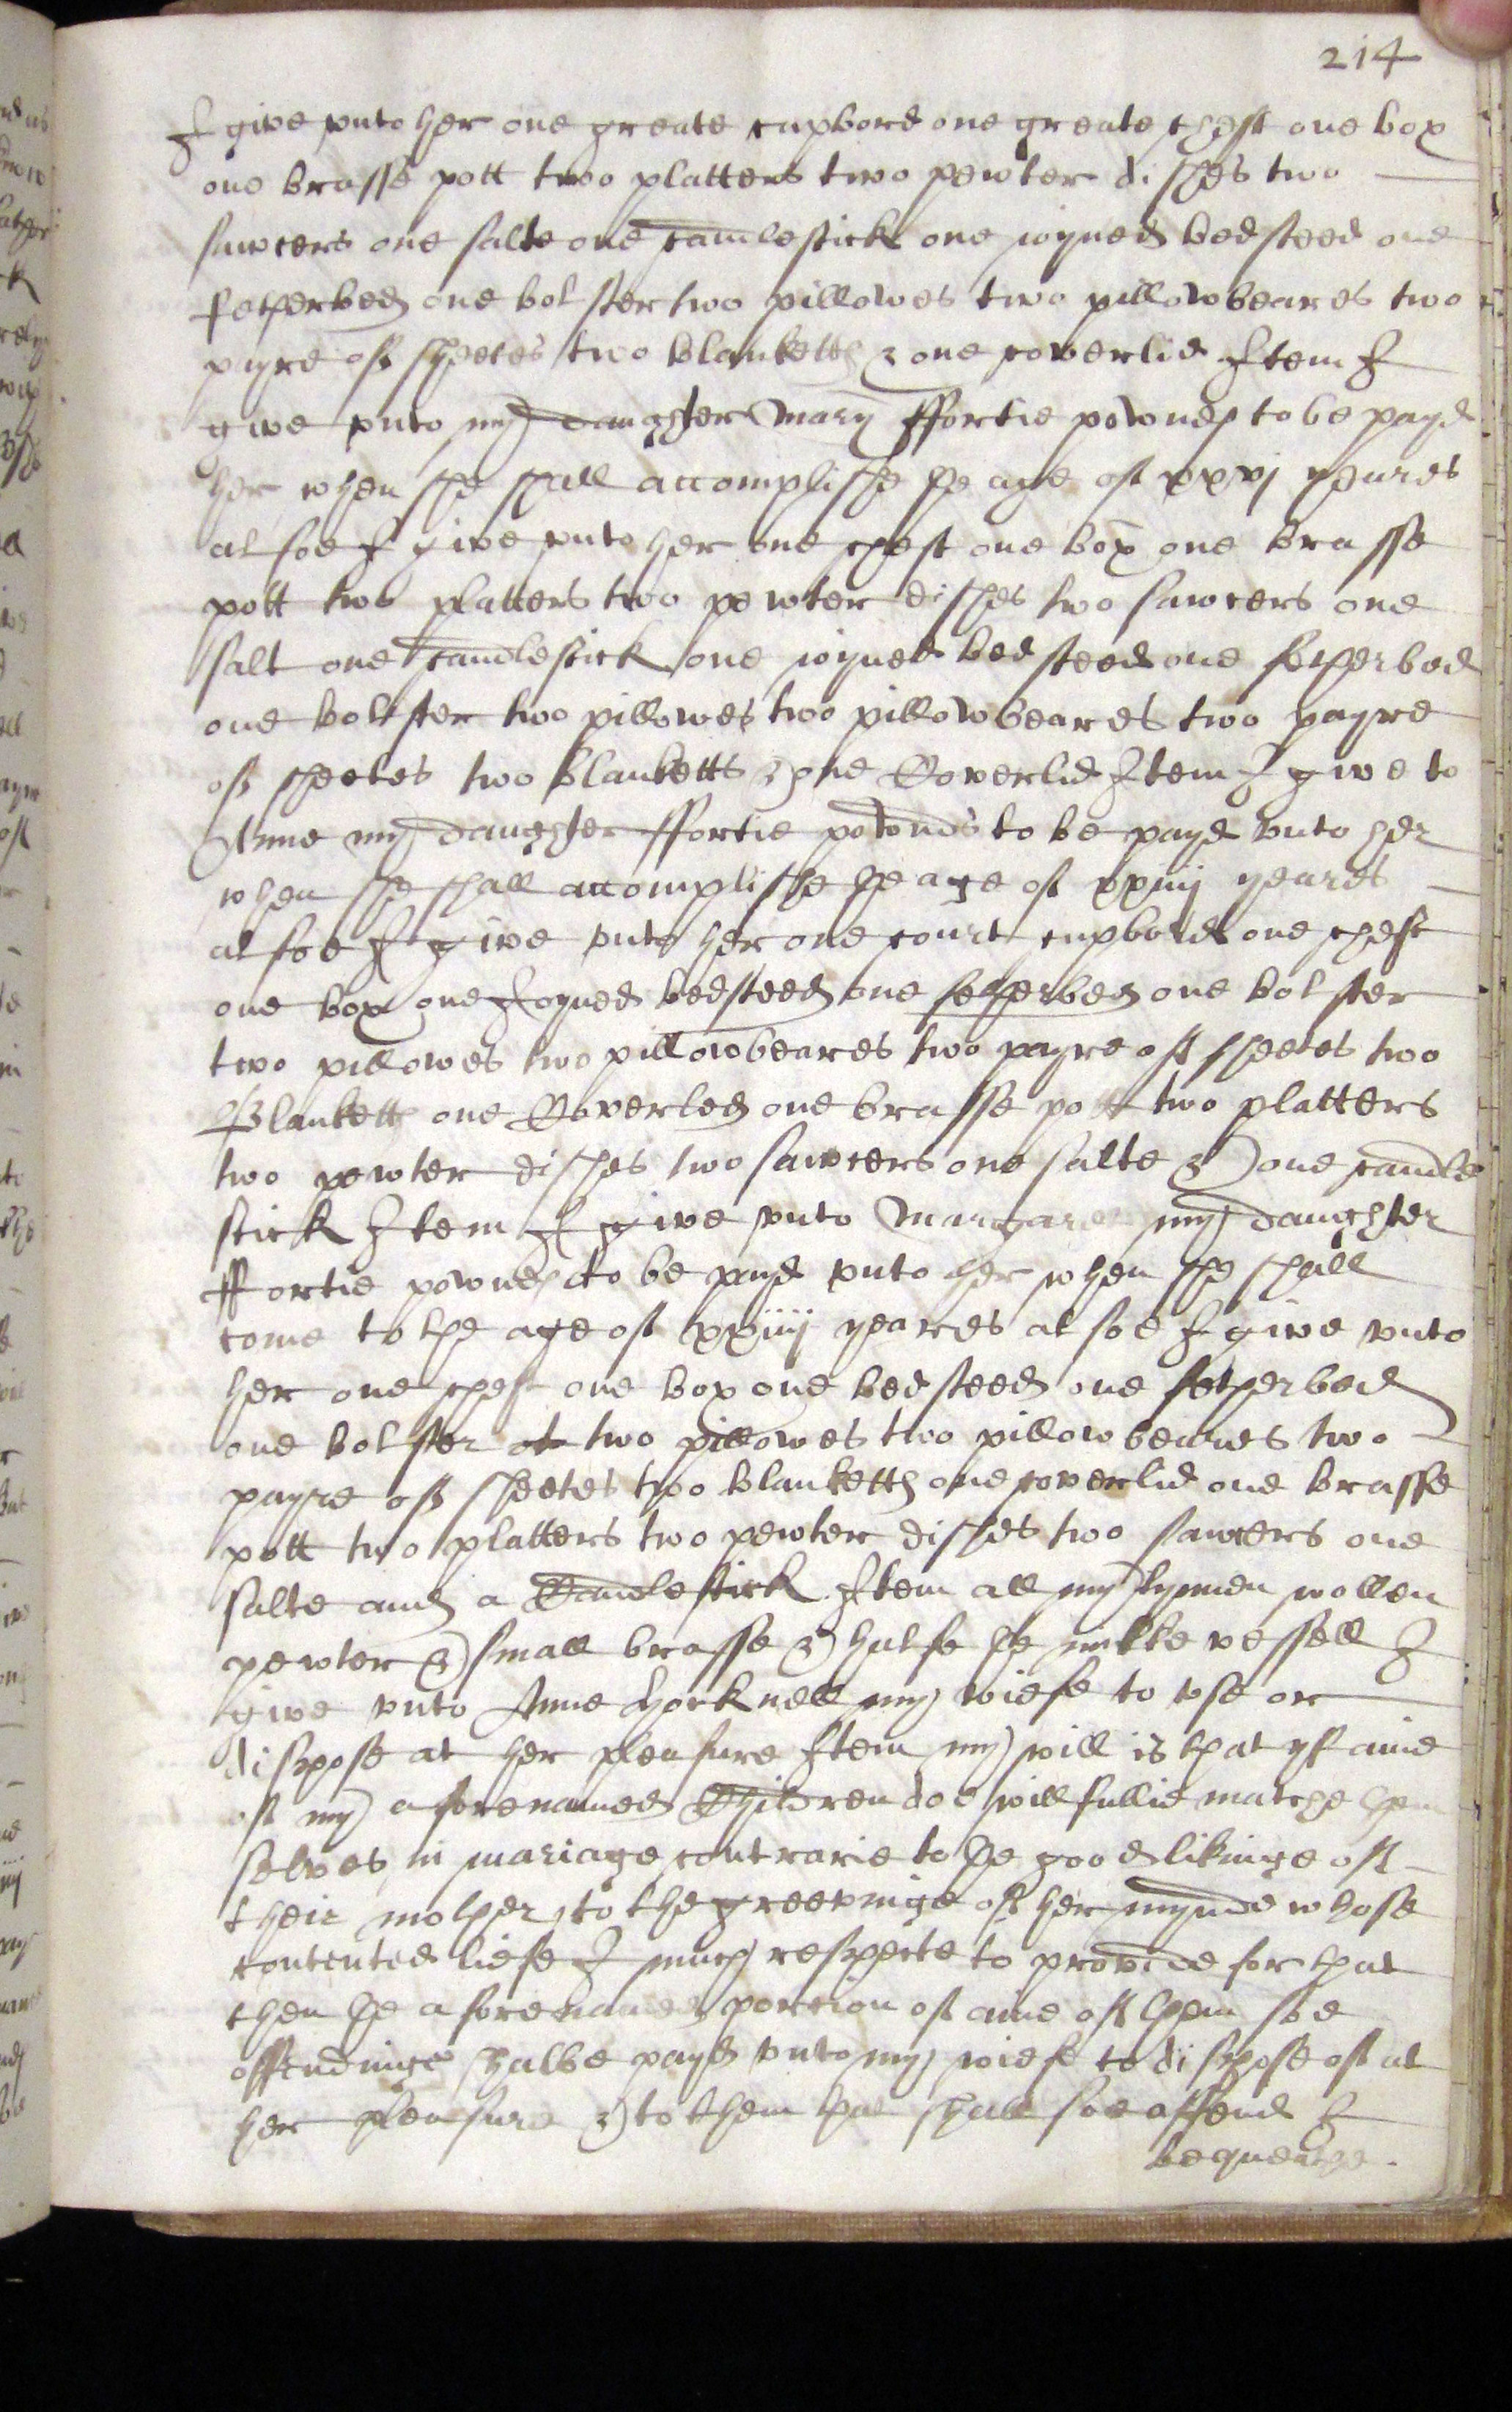 214
I give vnto her one greate cupbord one greate chest one box
one brasse pott twoo platters two pewter dishes two
sawcers one salte one candlestick one ioyned bedsteed one
fetherbed one bolster two pillowes two pillowbeares two
payre of sheetes two blanketts & one coverlid Item I
give vnto my daughter Mary ffortie pownds to be payd
her when she shall accomplishe the age of xxvj yeares
alsoe I give vnto her one chest one box one brasse
pott two platters two pewter dishes two sawcers one
salt one candlestick one ioyned bedsteed one fetherbed
one bolster two pillowes two pillowbeares two payre
of sheetes two blanketts & one Coverlid Item I give to
Anne my daughter ffortie pownds to be payd vnto her
when she shall accomplishe the age of xxiiij yeares
alsoe I give vnto her one court cupbord one chest
one box one Ioyned bedsteed one fetherbed one bolster
two pillowes two pillowbeares two payre of sheetes two
Blanketts one Coverled one brasse pott two platters
two pewter dishes two sawcers one salte & one candle
stick Item I give vnto Margaret my daughter
ffortie pownds to be payd vnto her when she shall
come to the age of xxiiij yeares alsoe I give vnto
her one chest one box one bedsteed one fetherbed
one bolster two pillowes two pillowbeares two
payre of sheetes two blanketts one coverlid one brasse
pott two platters two pewter dishes two sawcers one
salte and a Candlestick Item all my lynnen wollen
pewter & small brasse & halfe the milke vessell I
give vnto Anne my wiefe to vse or
dispose at her pleasure Item my will is that yf anie
of my aforenamed Children doe willfullie matche them
selves in mariage contrarie to the good likinge of
their mother to the greevinge of her mynde whose
contented liefe I much respecte to provide for that
then the aforenamed porcion of anie of them soe
offendinge shalbe payd vnto my wiefe to dispose of at
her pleasure & to them that shall soe offend I
bequeathe.